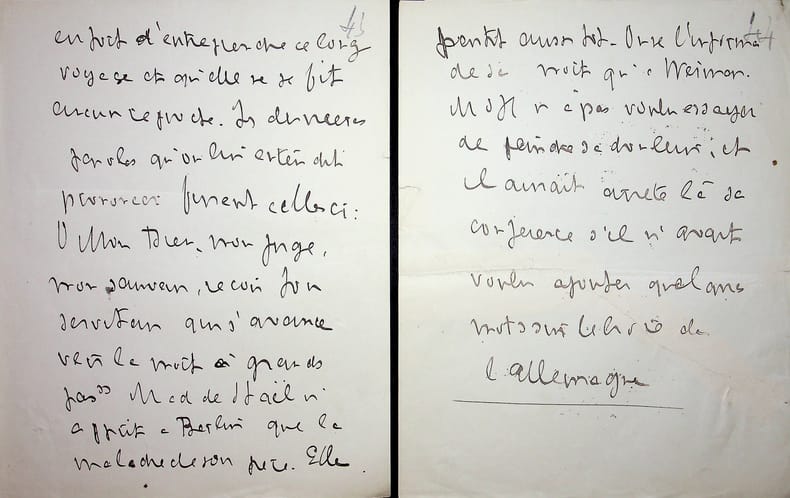 43
en fort d'entreprendre ce long
voyage et qu'elle ne se fit
aucun reproche. Les dernieres
paroles qu'on lui entendit
prononcer furent celles ci :
O Mon Dieu, mon juge,
mon sauveur, recois ton
serviteur qui s'avance
vers la mort à grands
pas" Mad de Stael n'
apprit a Berlin que la
maladie de son pere. Elle
44
partit aussi tot. On ne l'informa
de sa mort qu'a Weimar.
n'a pas voulu essayer
de peindre sa douleur, et
il aurait arrete là sa
conference s'il n'avait
voulu ajouter quelques
mots sur le livre de
l'allemagne